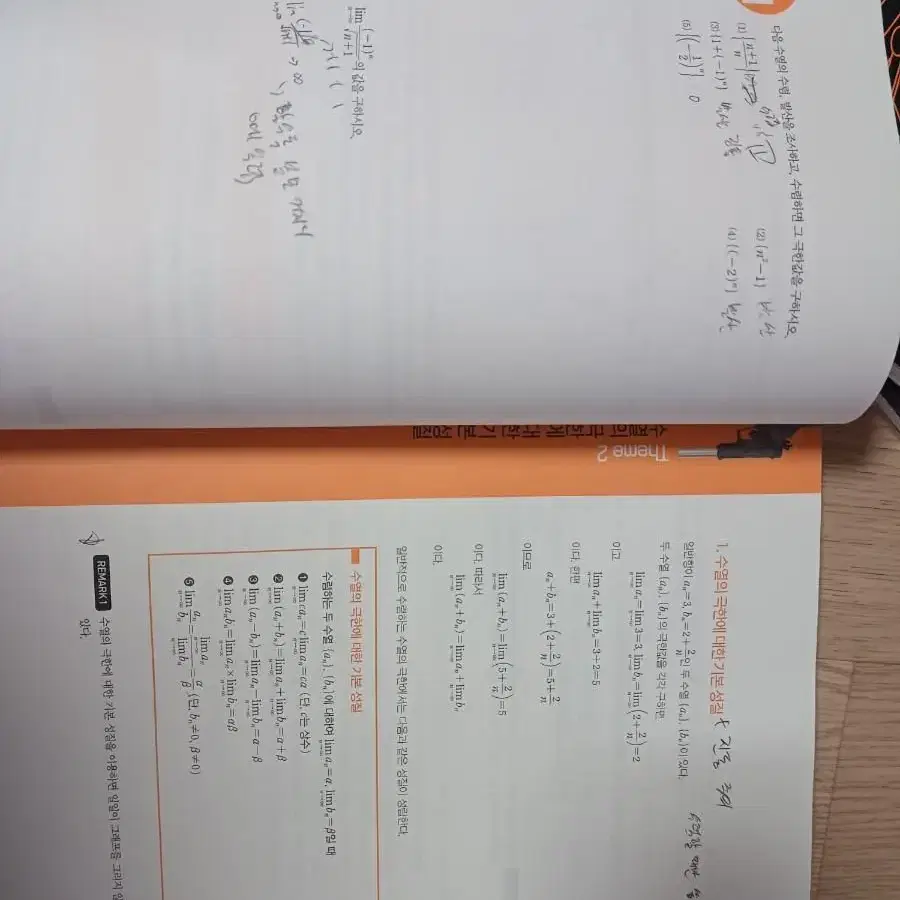 다음 수열의 수렴, 발산을 조사하고, 수렴하면 그 극한값을 구하시오.
(1) {(n+1)/n} 수렴 1
(2) {n²-1} 발산
(3) {1+(-1)ⁿ} 발산 진동
(4) {(-2)ⁿ} 발산
(5) {(-1/2)ⁿ} 0
lim n→∞ (-1)ⁿ/√(n+1) 의 값을 구하시오.
→ ∞
0에
Theme 2
수열의 극한에 대한 기본 성질
1. 수열의 극한에 대한 기본 성질 진동 주의
수렴할 때만
일반항이 aₙ=3, bₙ=2+2/n인 두 수열 {aₙ}, {bₙ}이 있다.
두 수열 {aₙ}, {bₙ}의 극한값을 각각 구하면
lim n→∞ aₙ=lim n→∞ 3=3, lim n→∞ bₙ=lim n→∞ (2+2/n)=2
이고
lim n→∞ aₙ+lim n→∞ bₙ=3+2=5
이다. 한편
aₙ+bₙ=3+(2+2/n)=5+2/n
이므로
lim n→∞ (aₙ+bₙ)=lim n→∞ (5+2/n)=5
이다. 따라서
lim n→∞ (aₙ+bₙ)=lim n→∞ aₙ+lim n→∞ bₙ
이다.
일반적으로 수렴하는 수열의 극한에서는 다음과 같은 성질이 성립한다.
수열의 극한에 대한 기본 성질
수렴하는 두 수열 {aₙ}, {bₙ}에 대하여 lim n→∞ aₙ=α, lim n→∞ bₙ=β일 때
❶ lim n→∞ caₙ=c lim n→∞ aₙ=cα (단, c는 상수)
❷ lim n→∞ (aₙ+bₙ)=lim n→∞ aₙ+lim n→∞ bₙ=α+β
❸ lim n→∞ (aₙ-bₙ)=lim n→∞ aₙ-lim n→∞ bₙ=α-β
❹ lim n→∞ aₙbₙ=lim n→∞ aₙ×lim n→∞ bₙ=αβ
❺ lim n→∞ aₙ/bₙ=lim n→∞ aₙ/lim n→∞ bₙ=α/β (단, bₙ≠0, β≠0)
REMARK 1 수열의 극한에 대한 기본 성질을 이용하면 일일이 그래프를 그리지 않
있다.